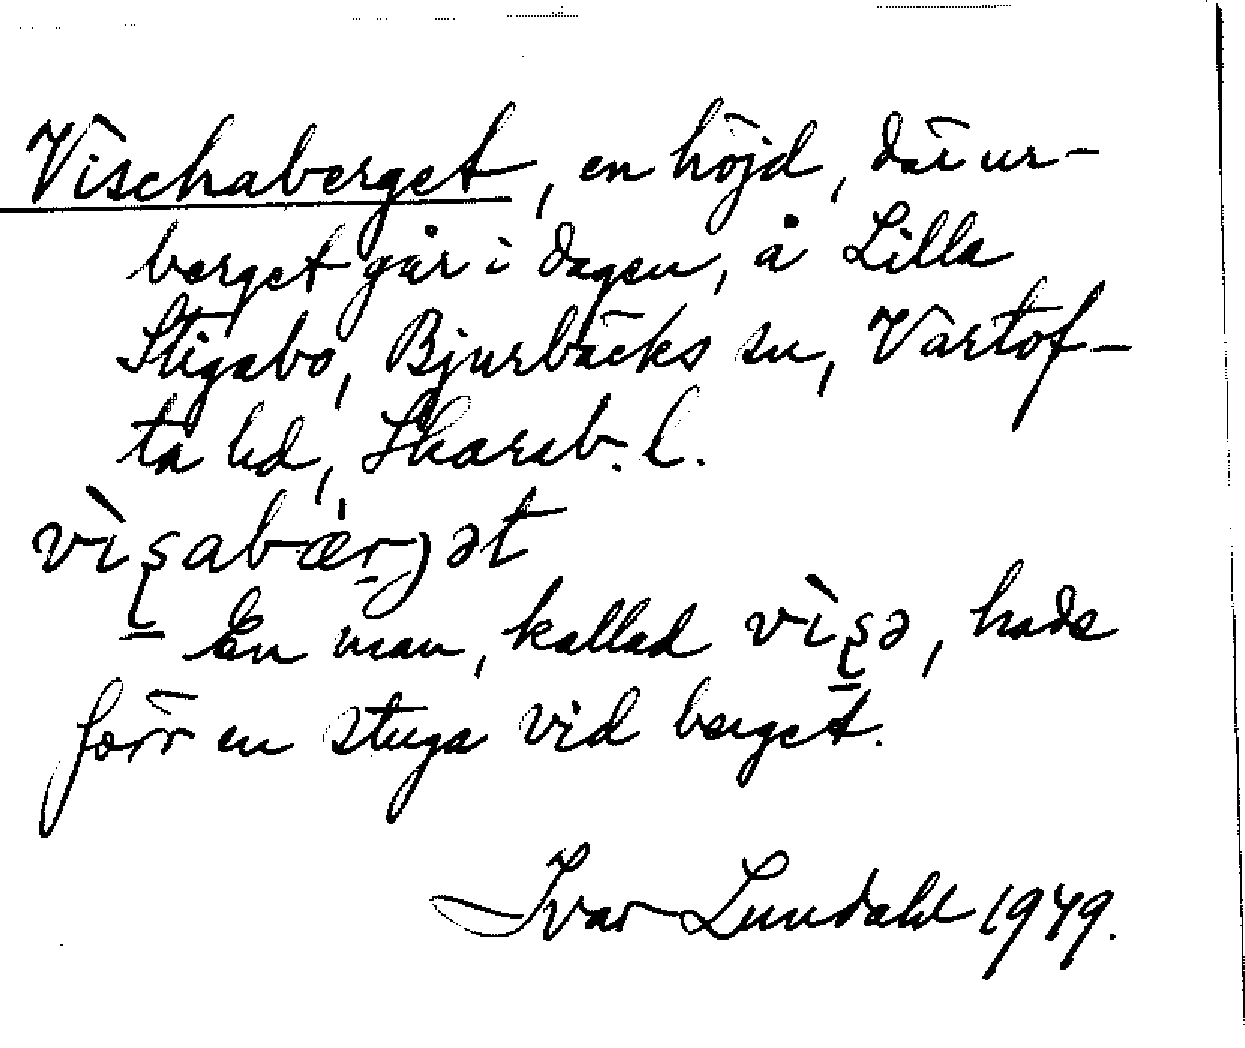 Vischaberget, en höjd, där ur-
berget går i dagen, å Lilla
Stigabo, Bjurbäcks sn, Vartof-
ta hd, Skarab. l.
vìʂabærjət
En man, kallad vìʂə, hade
förr en stuga vid berget.
Ivar Lundahl 1949.